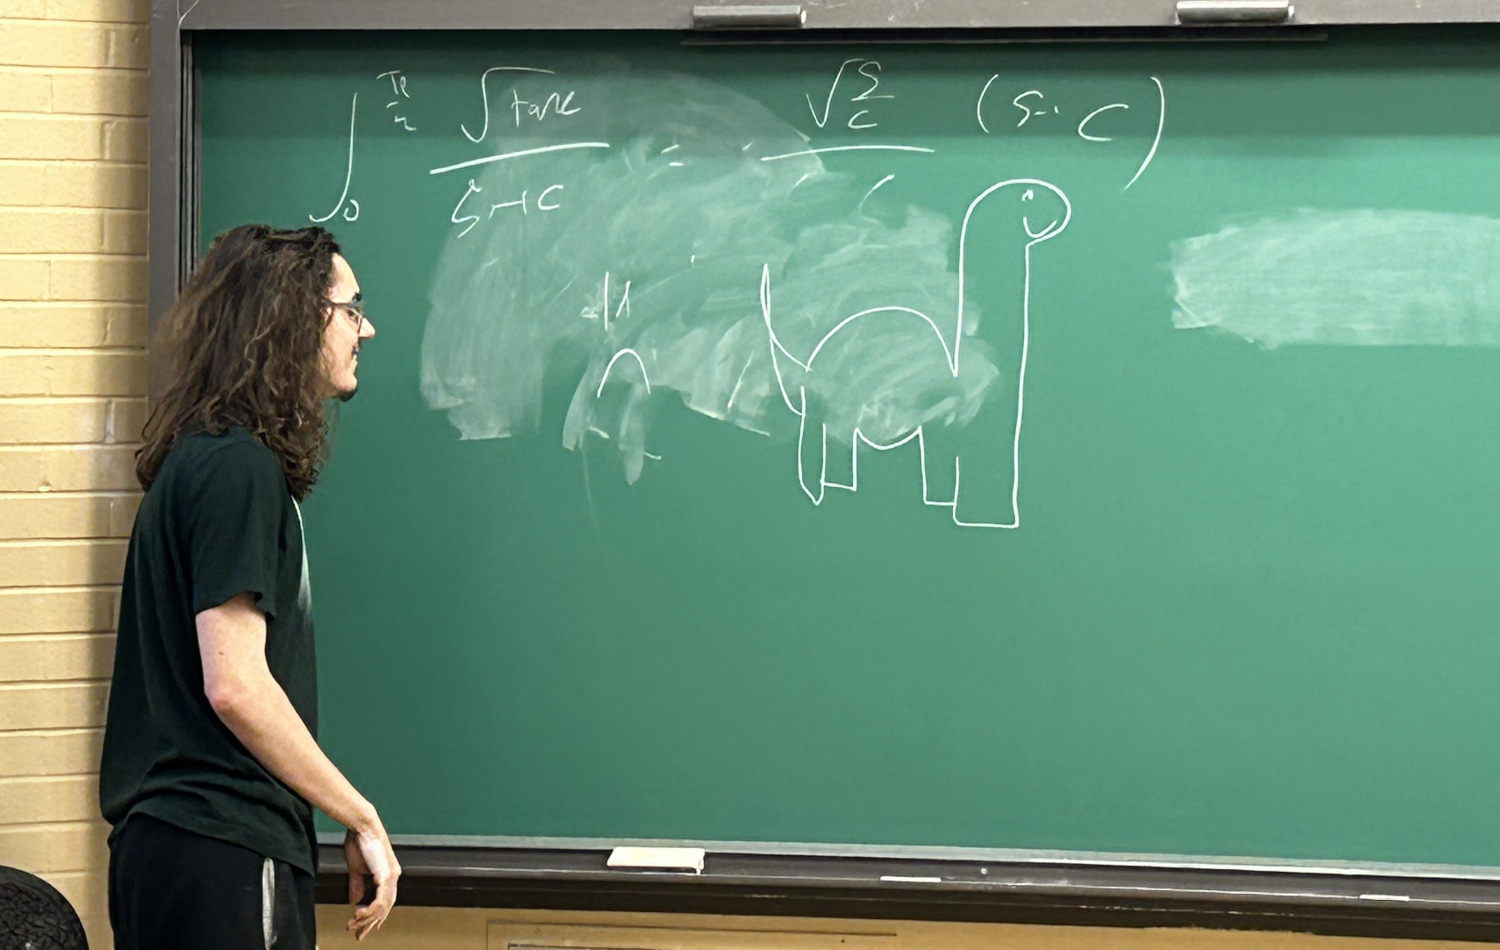 ∫₀^(π/2) √tanx / (s+c) = √(s/c) (s-c) / c